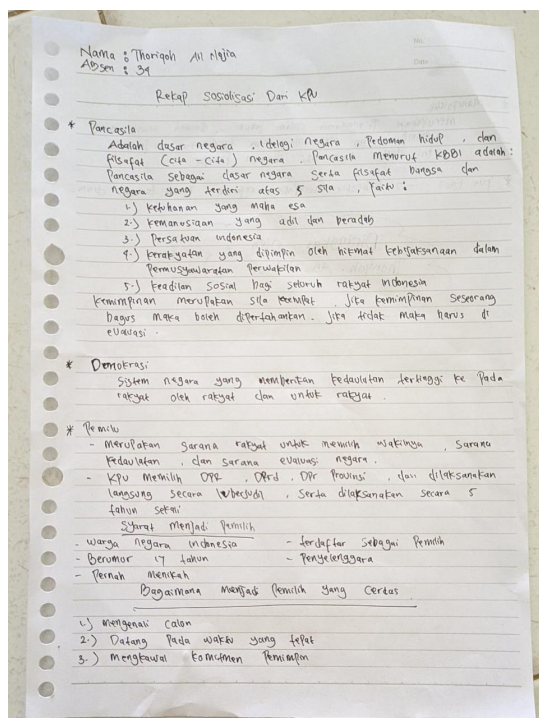 No
Date
Nama : Thoriqoh Ail Najia
Absen : 34
Rekap Sosiolisasi Dari KPU
* Pancasila
Adalah dasar negara , Idelogi negara , Pedoman hidup , dan
filsafat (cita - cita) negara . Pancasila menurut KBBI adalah :
Pancasila sebagai dasar negara serta filsafat bangsa dan
negara yang terdiri atas 5 sila , yaitu :
1.) ketuhanan yang maha esa
2.) kemanusiaan yang adil dan beradab
3.) Persatuan indonesia
4.) kerakyatan yang dipimpin oleh hikmat kebijaksanaan dalam
Permusyawaratan Perwakilan
5.) keadilan sosial bagi seluruh rakyat indonesia
kemimpinan merupakan sila keempat . Jika kemimpinan seseorang
bagus maka boleh dipertahankan . Jika tidak maka harus di
evaluasi .
* Demokrasi
Sistem negara yang memberikan kedaulatan tertinggi ke pada
rakyat oleh rakyat dan untuk rakyat .
* Pemilu
- Merupakan sarana rakyat untuk memilih wakilnya , sarana
kedaulatan , dan sarana evaluasi negara .
- KPU Memilih DPR , DPrd , DPr Provinsi , dan dilaksanakan
langsung secara luberjudil , serta dilaksanakan secara 5
tahun sekali
Syarat menjadi Pemilih
- warga negara indonesia - terdaftar sebagai Pemilih
- Berumur 17 tahun - Penyelenggara
- Pernah menikah
Bagaimana Menjadi Pemilih yang Cerdas
1.) mengenali calon
2.) Datang Pada waktu yang tepat
3.) mengkawal komitmen Pemimpin